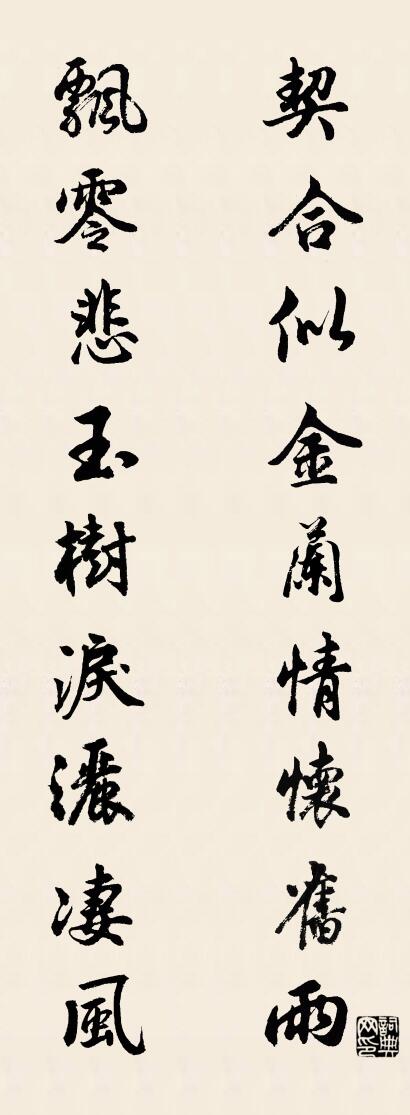 契合似金蘭情懷舊雨
飄零悲玉樹淚灑淒風
詞典网印